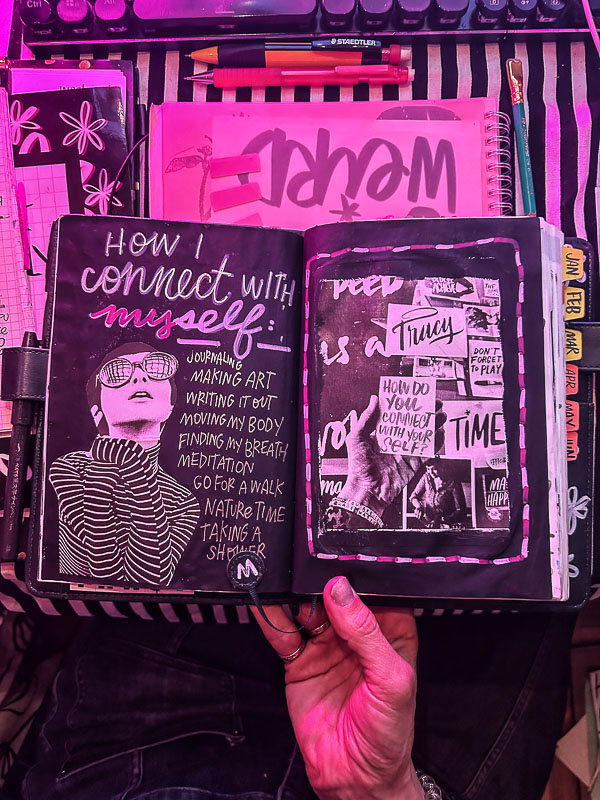 Ctrl
STAEDTLER
HOW I
connect WITH
myself:
JOURNALING
MAKING ART
WRITING IT OUT
MOVING MY BODY
FINDING MY BREATH
MEDITATION
GO FOR A WALK
NATURE TIME
TAKING A
SHOWER
M
Tracy
DON'T
FORGET
TO PLAY
HOW DO
YOU
CONNECT
WITH YOUR
SELF?
TIME
MA
HAPP
JAN
FEB
MAR
APR
MAY
JUN